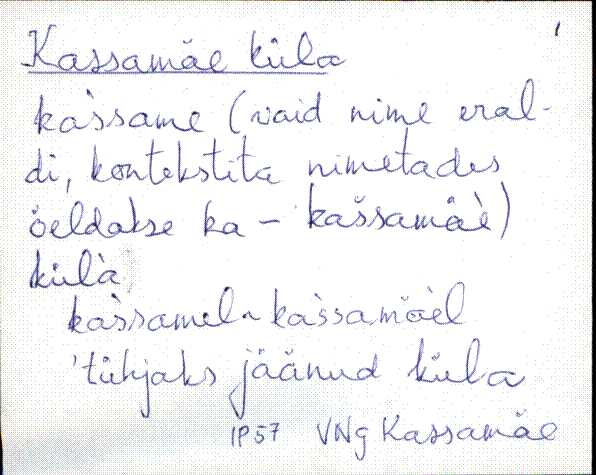 1
Kassamäe küla
kàssame (vaid nime eral-
di, kontekstita nimetades
öeldakse ka – kaššamäè)
külà
kàssamel ~ kàssamäèl
'tühjaks jäänud küla
1957 VNg Kassamäe